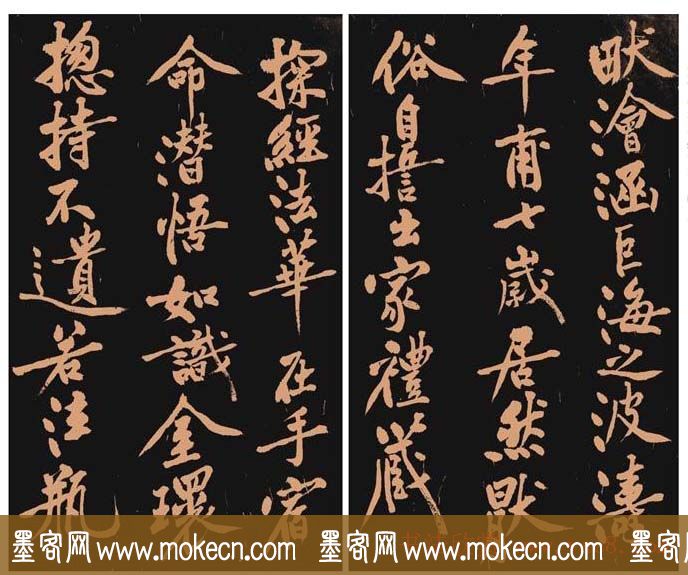 畎澮涵巨海之波濤
年甫七歲居然猒
俗自誓出家禮藏
探經法華在手宿
命潜悟如識金環
揔持不遺若注瓶
墨客网 www.mokecn.com 墨客网 www.mokecn.com 墨客网